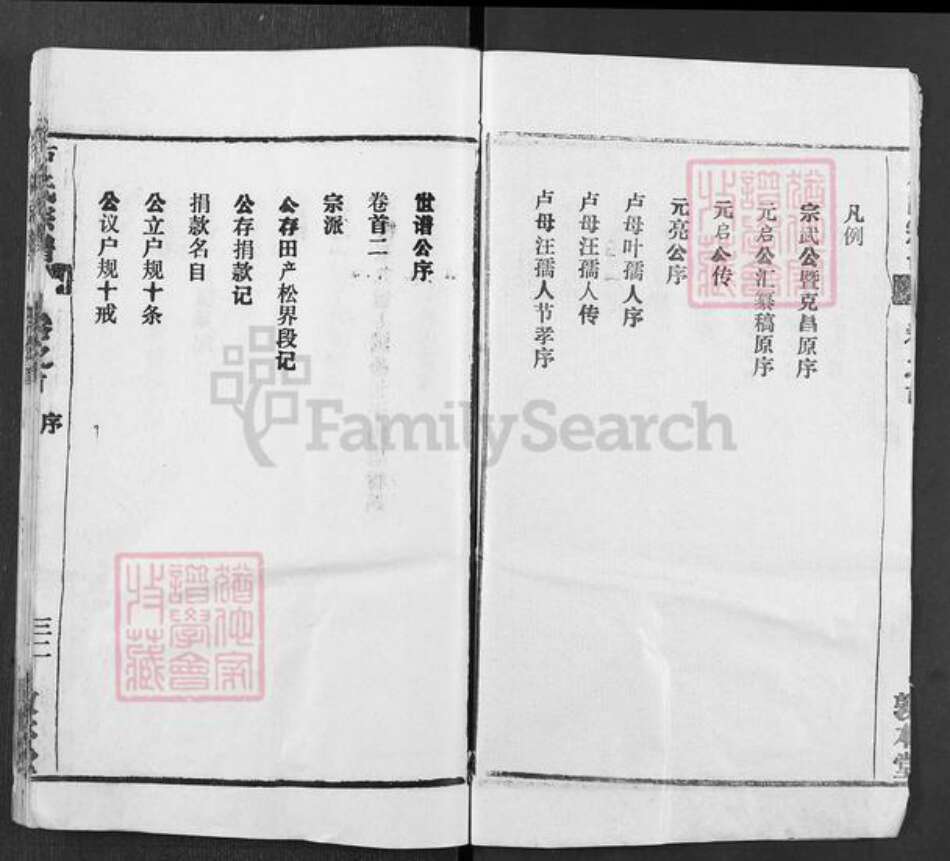 凡例
宗武公暨克昌原序
元启公汇纂稿原序
元启公传
元亮公序
卢母叶孺人序
卢母汪孺人传
卢母汪孺人节孝序
敦本堂
世谱公序
卷首二
宗派
公存田产松界段记
公存捐款记
捐款名目
公立户规十条
公议户规十戒
序
FamilySearch